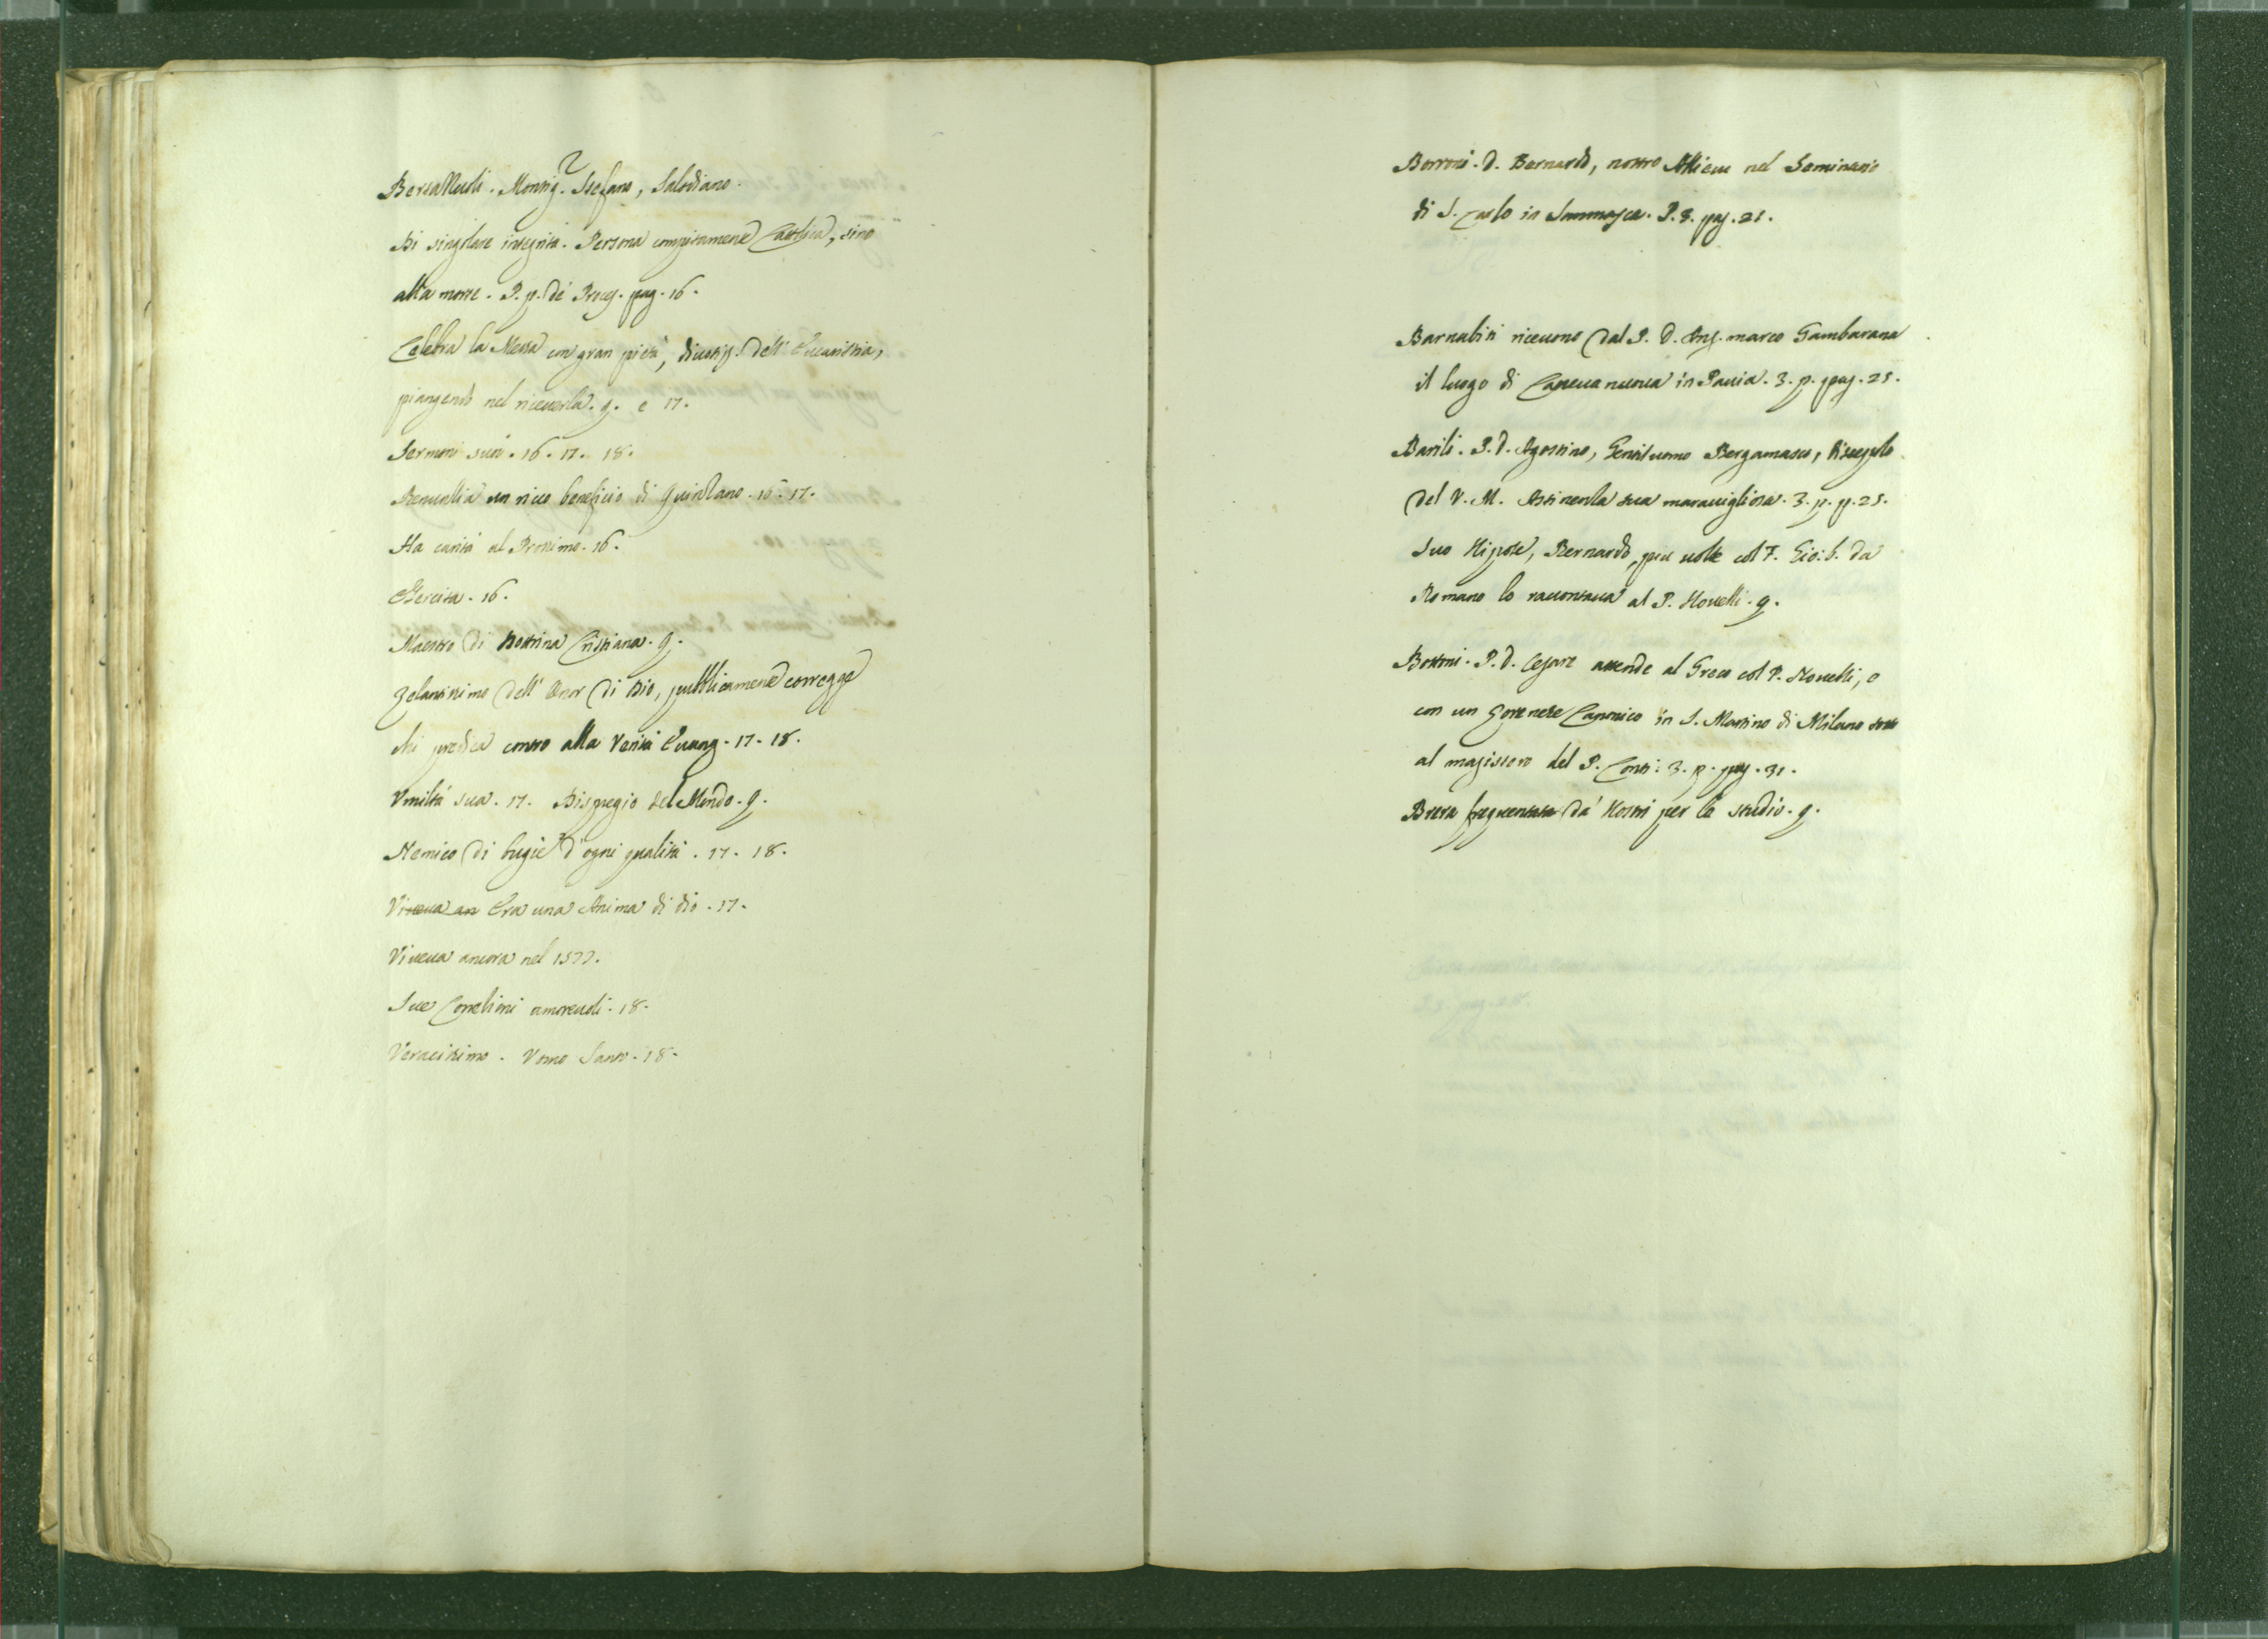 Bertazzuoli. Monsig.r Stefano, Salodiano.
Di singolare integrità. Persona compitamente Cattolica, sino
alla morte. P. p. de' Proces. pag. 16.
Celebra la Messa con gran pietà, divotiss. dell' Eucaristia,
piangendo nel riceverla. q. e 17.
Sermoni suoi. 16. 17. 18.
Renunzia un ricco beneficio di Quinzano. 16. 17.
Ha carità al Prossimo. 16.
Esercita. 16.
Maestro di Dottrina Cristiana. q.
Zelantissimo dell' Onor di Dio, pubblicamente corregge
chi predica contro alla Verità Evang. 17. 18.
Umiltà sua. 17. Dispregio del Mondo. q.
Nemico di bugie d'ogni qualità. 17. 18.
Viveva an Era una Anima di Dio. 17.
Viveva ancora nel 1577.
Sue Correzioni amorevoli. 18.
Veracissimo. Uomo Santo. 18.
Borroni. D. Bernardo, nostro Allievo nel Seminario
di S. Carlo in Sommasca. P. 3. pag. 21.
Barnabiti ricevono dal P. D. Ang. marco Gambarana
il luogo di Canevanuova in Pavia. 3. p. pag. 25.
Barili. P. D. Agostino, Gentiluomo Bergamasco, Discepolo
del V. M. Astinenza sua maravigliosa. 3. p. p. 25.
Suo Nipote, Bernardo, piu volte col F. Gio: b. da
Romano lo raccontava al P. Novelli. q.
Bottoni. P. D. Cesare attende al Greco col P. Novelli, e
con un Canonico in S. Martino di Milano sotto
al magistero del P. Conti. 3. p. pag. 31.
Brera frequentata da' Nostri per lo studio. q.